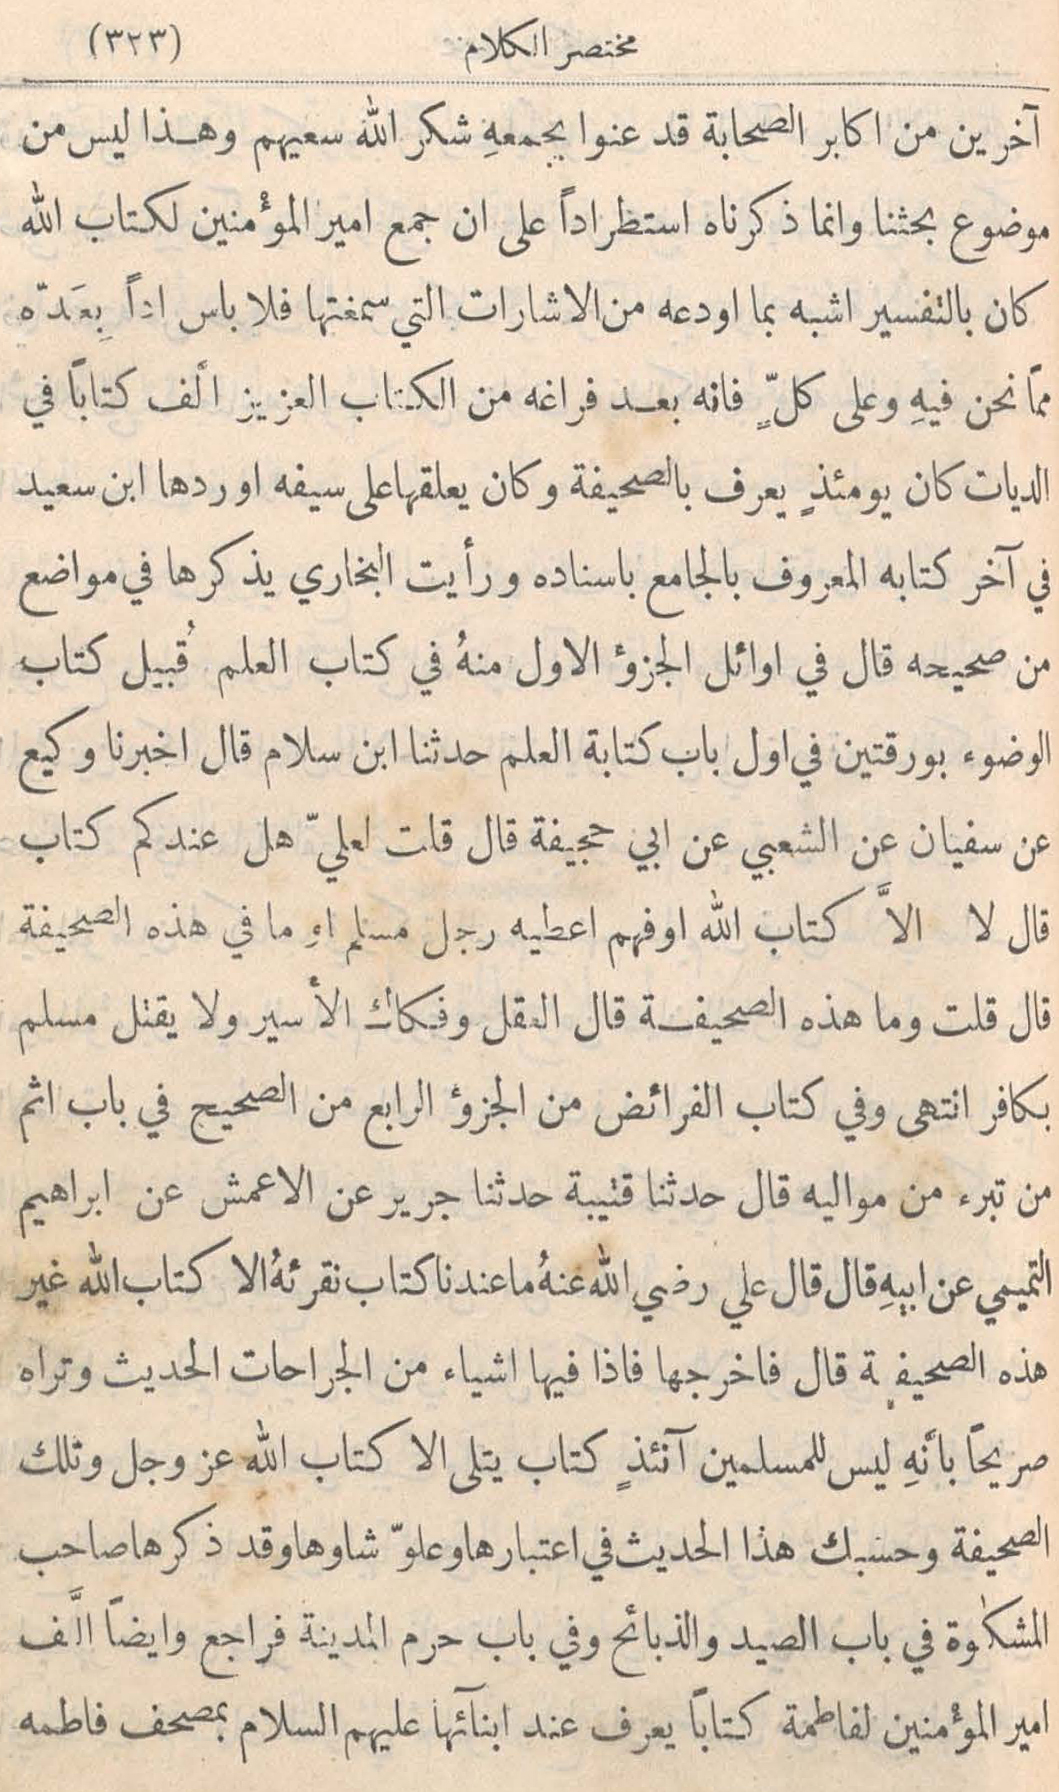 مختصر الكلام (٣٢٣)
آخرين من اكابر الصحابة قد عنوا بجمعهِ شكر الله سعيهم وهذا ليس من
موضوع بحثنا وانما ذكرناه استظراداً على ان جمع امير المؤمنين لكتاب الله
كان بالتفسير اشبه بما اودعه من الاشارات التي سمغتها فلا باس اذاً بِعَدّه
ممّا نحن فيهِ وعلى كلٍّ فانه بعد فراغه من الكتاب العزيز الّف كتاباً في
الديات كان يومئذٍ يعرف بالصحيفة وكان يعلقها على سيفه اوردها ابن سعيد
في آخر كتابه المعروف بالجامع باسناده ورأيت البخاري يذكرها في مواضع
من صحيحه قال في اوائل الجزؤ الاول منهُ في كتاب العلم قُبيل كتاب
الوضوء بورقتين في اول باب كتابة العلم حدثنا ابن سلام قال اخبرنا وكيع
عن سفيان عن الشعبي عن ابي حجيفة قال قلت لعليّ هل عندكم كتاب
قال لا الاَّ كتاب الله اوفهم اعطيه رجل مسلم او ما في هذه الصحيفة
قال قلت وما هذه الصحيفة قال العقل وفكاك الأسير ولا يقتل مسلم
بكافر انتهى وفي كتاب الفرائض من الجزؤ الرابع من الصحيح في باب اثم
من تبرء من مواليه قال حدثنا قتيبة حدثنا جرير عن الاعمش عن ابراهيم
التميمي عن ابيهِ قال قال علي رضي الله عنهُ ما عندنا كتاب نقرئهُ الا كتاب الله غير
هذه الصحيفة قال فاخرجها فاذا فيها اشياء من الجراحات الحديث وتراه
صريحاً بأنهِ ليس للمسلمين آنئذٍ كتاب يتلى الا كتاب الله عز وجل وتلك
الصحيفة وحسبك هذا الحديث في اعتبارها وعلوّ شاوها وقد ذكرها صاحب
المشكٰوة في باب الصيد والذبائح وفي باب حرم المدينة فراجع وايضاً الَّف
امير المؤمنين لفاطمة كتاباً يعرف عند ابنآئها عليهم السلام بمصحف فاطمه